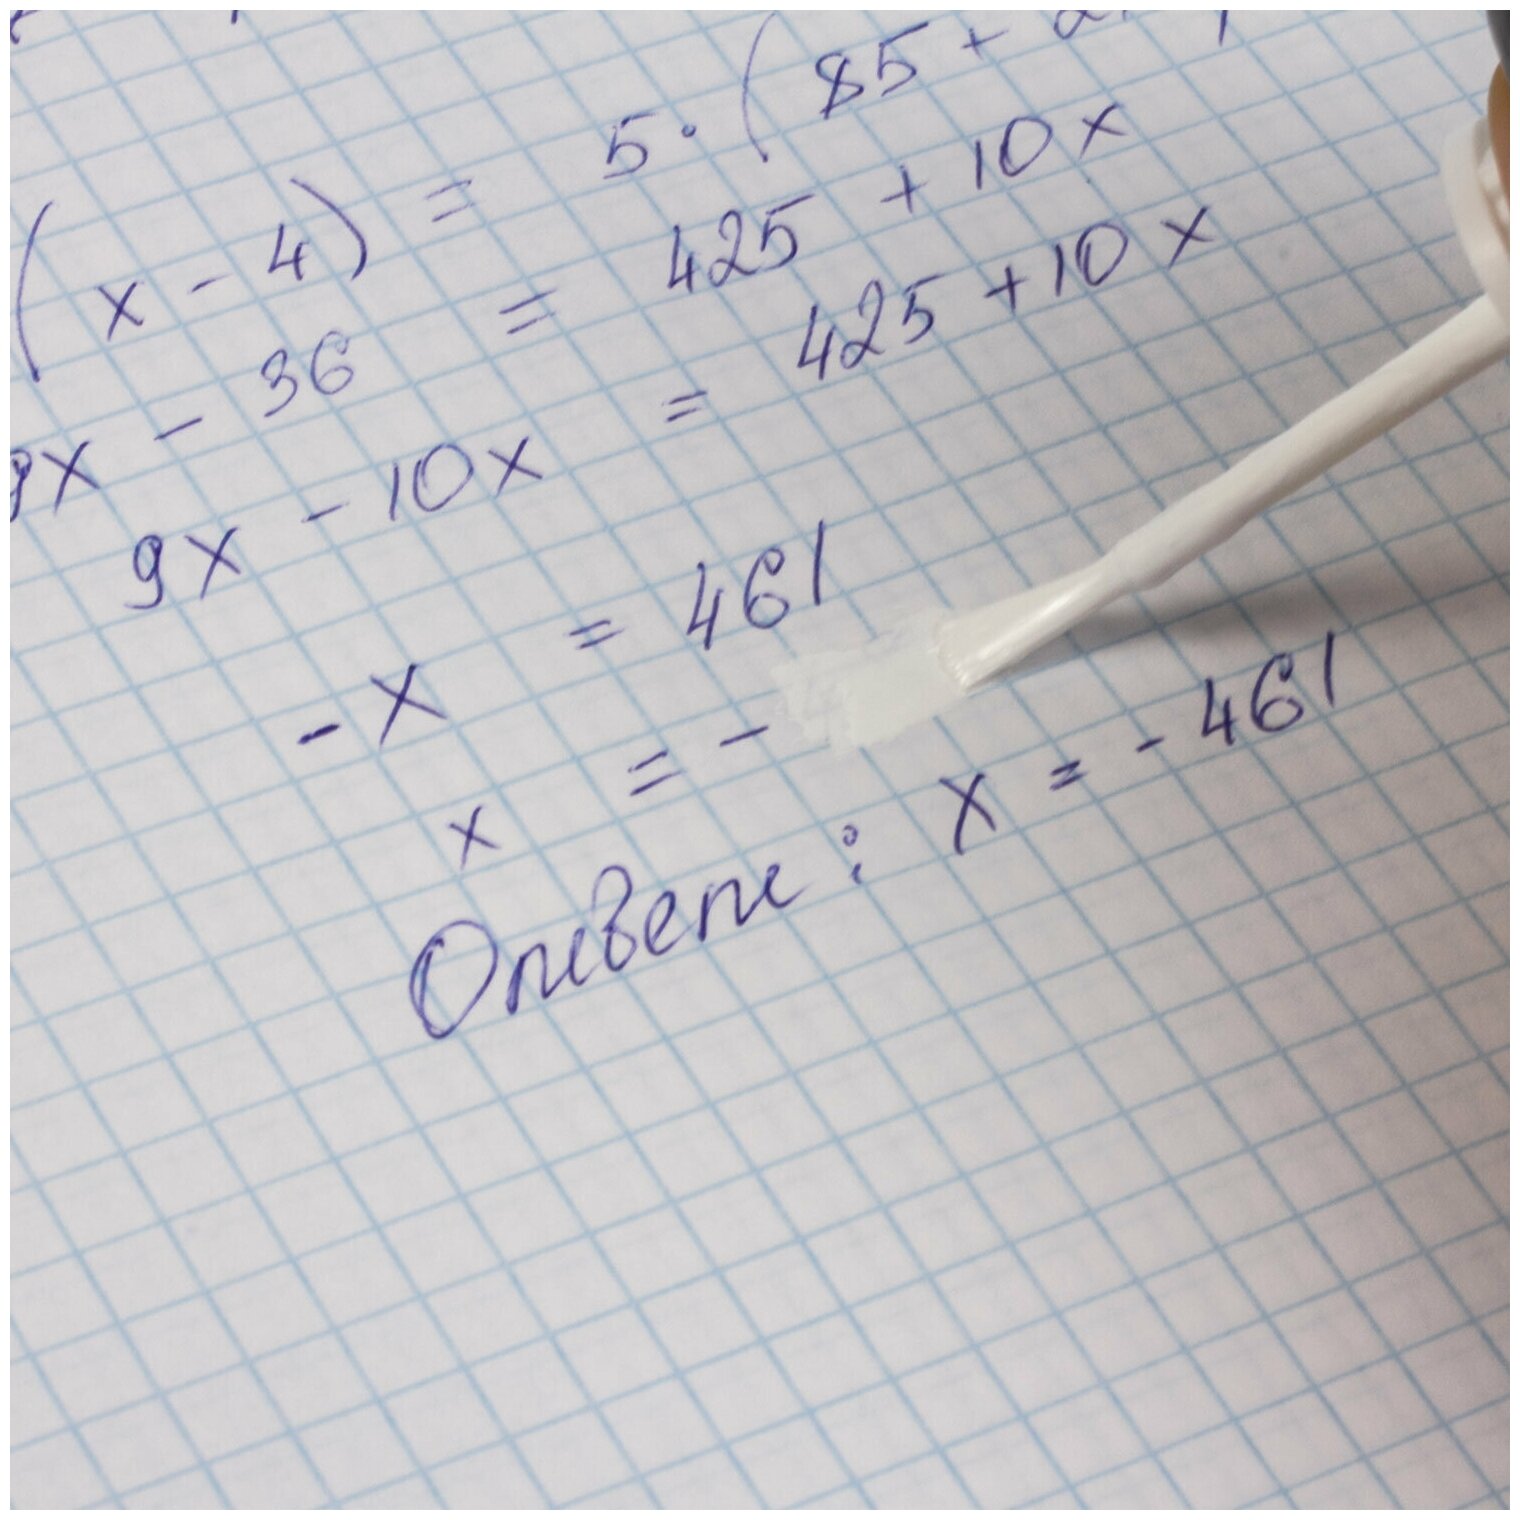 (x - 4) = 5 · (85 + 2
9x - 36 = 425 + 10x
9x - 10x = 425 + 10x
- x = 461
x = -
Ответ: x = - 461